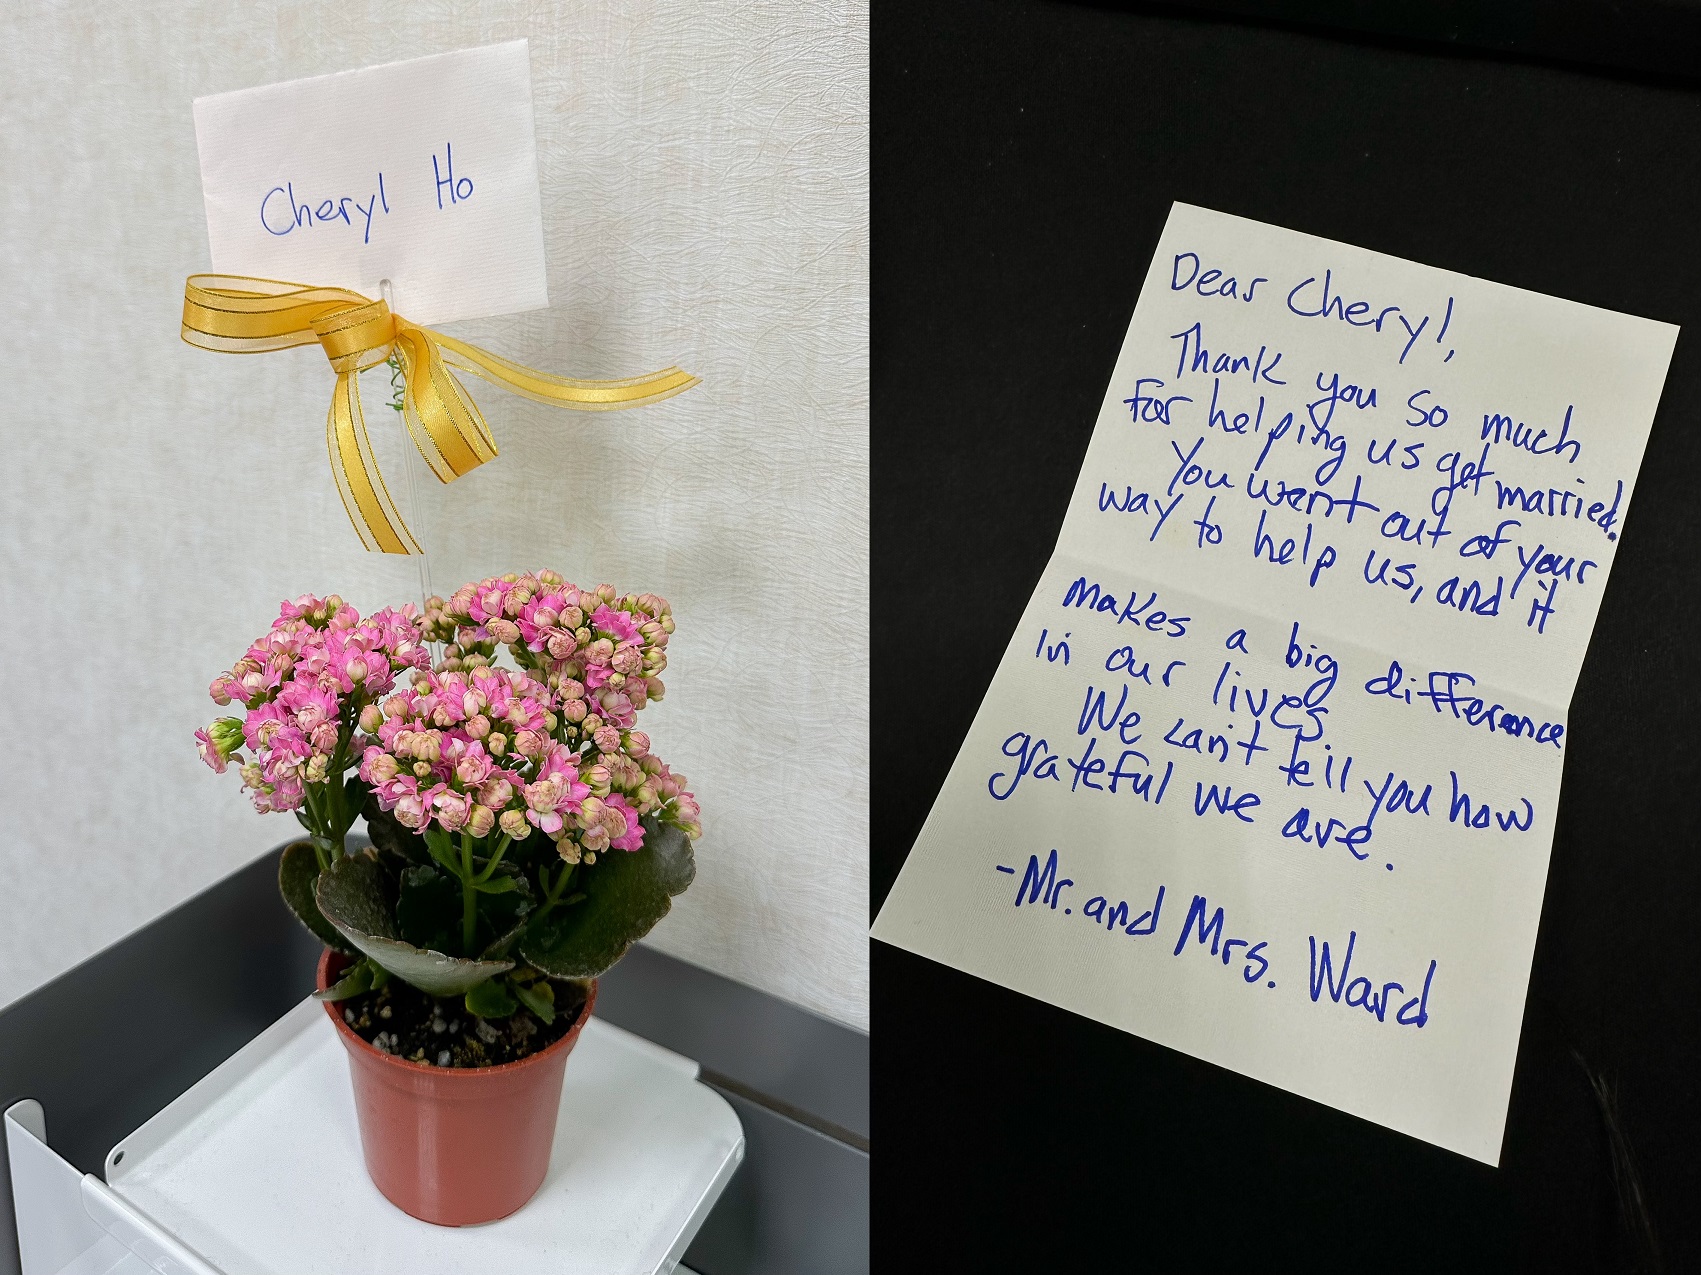 Cheryl Ho
Dear Cheryl,
Thank you so much
for helping us get married.
You went out of your
way to help us, and it
makes a big difference
in our lives
We can't tell you how
grateful we are.
-Mr. and Mrs. Ward